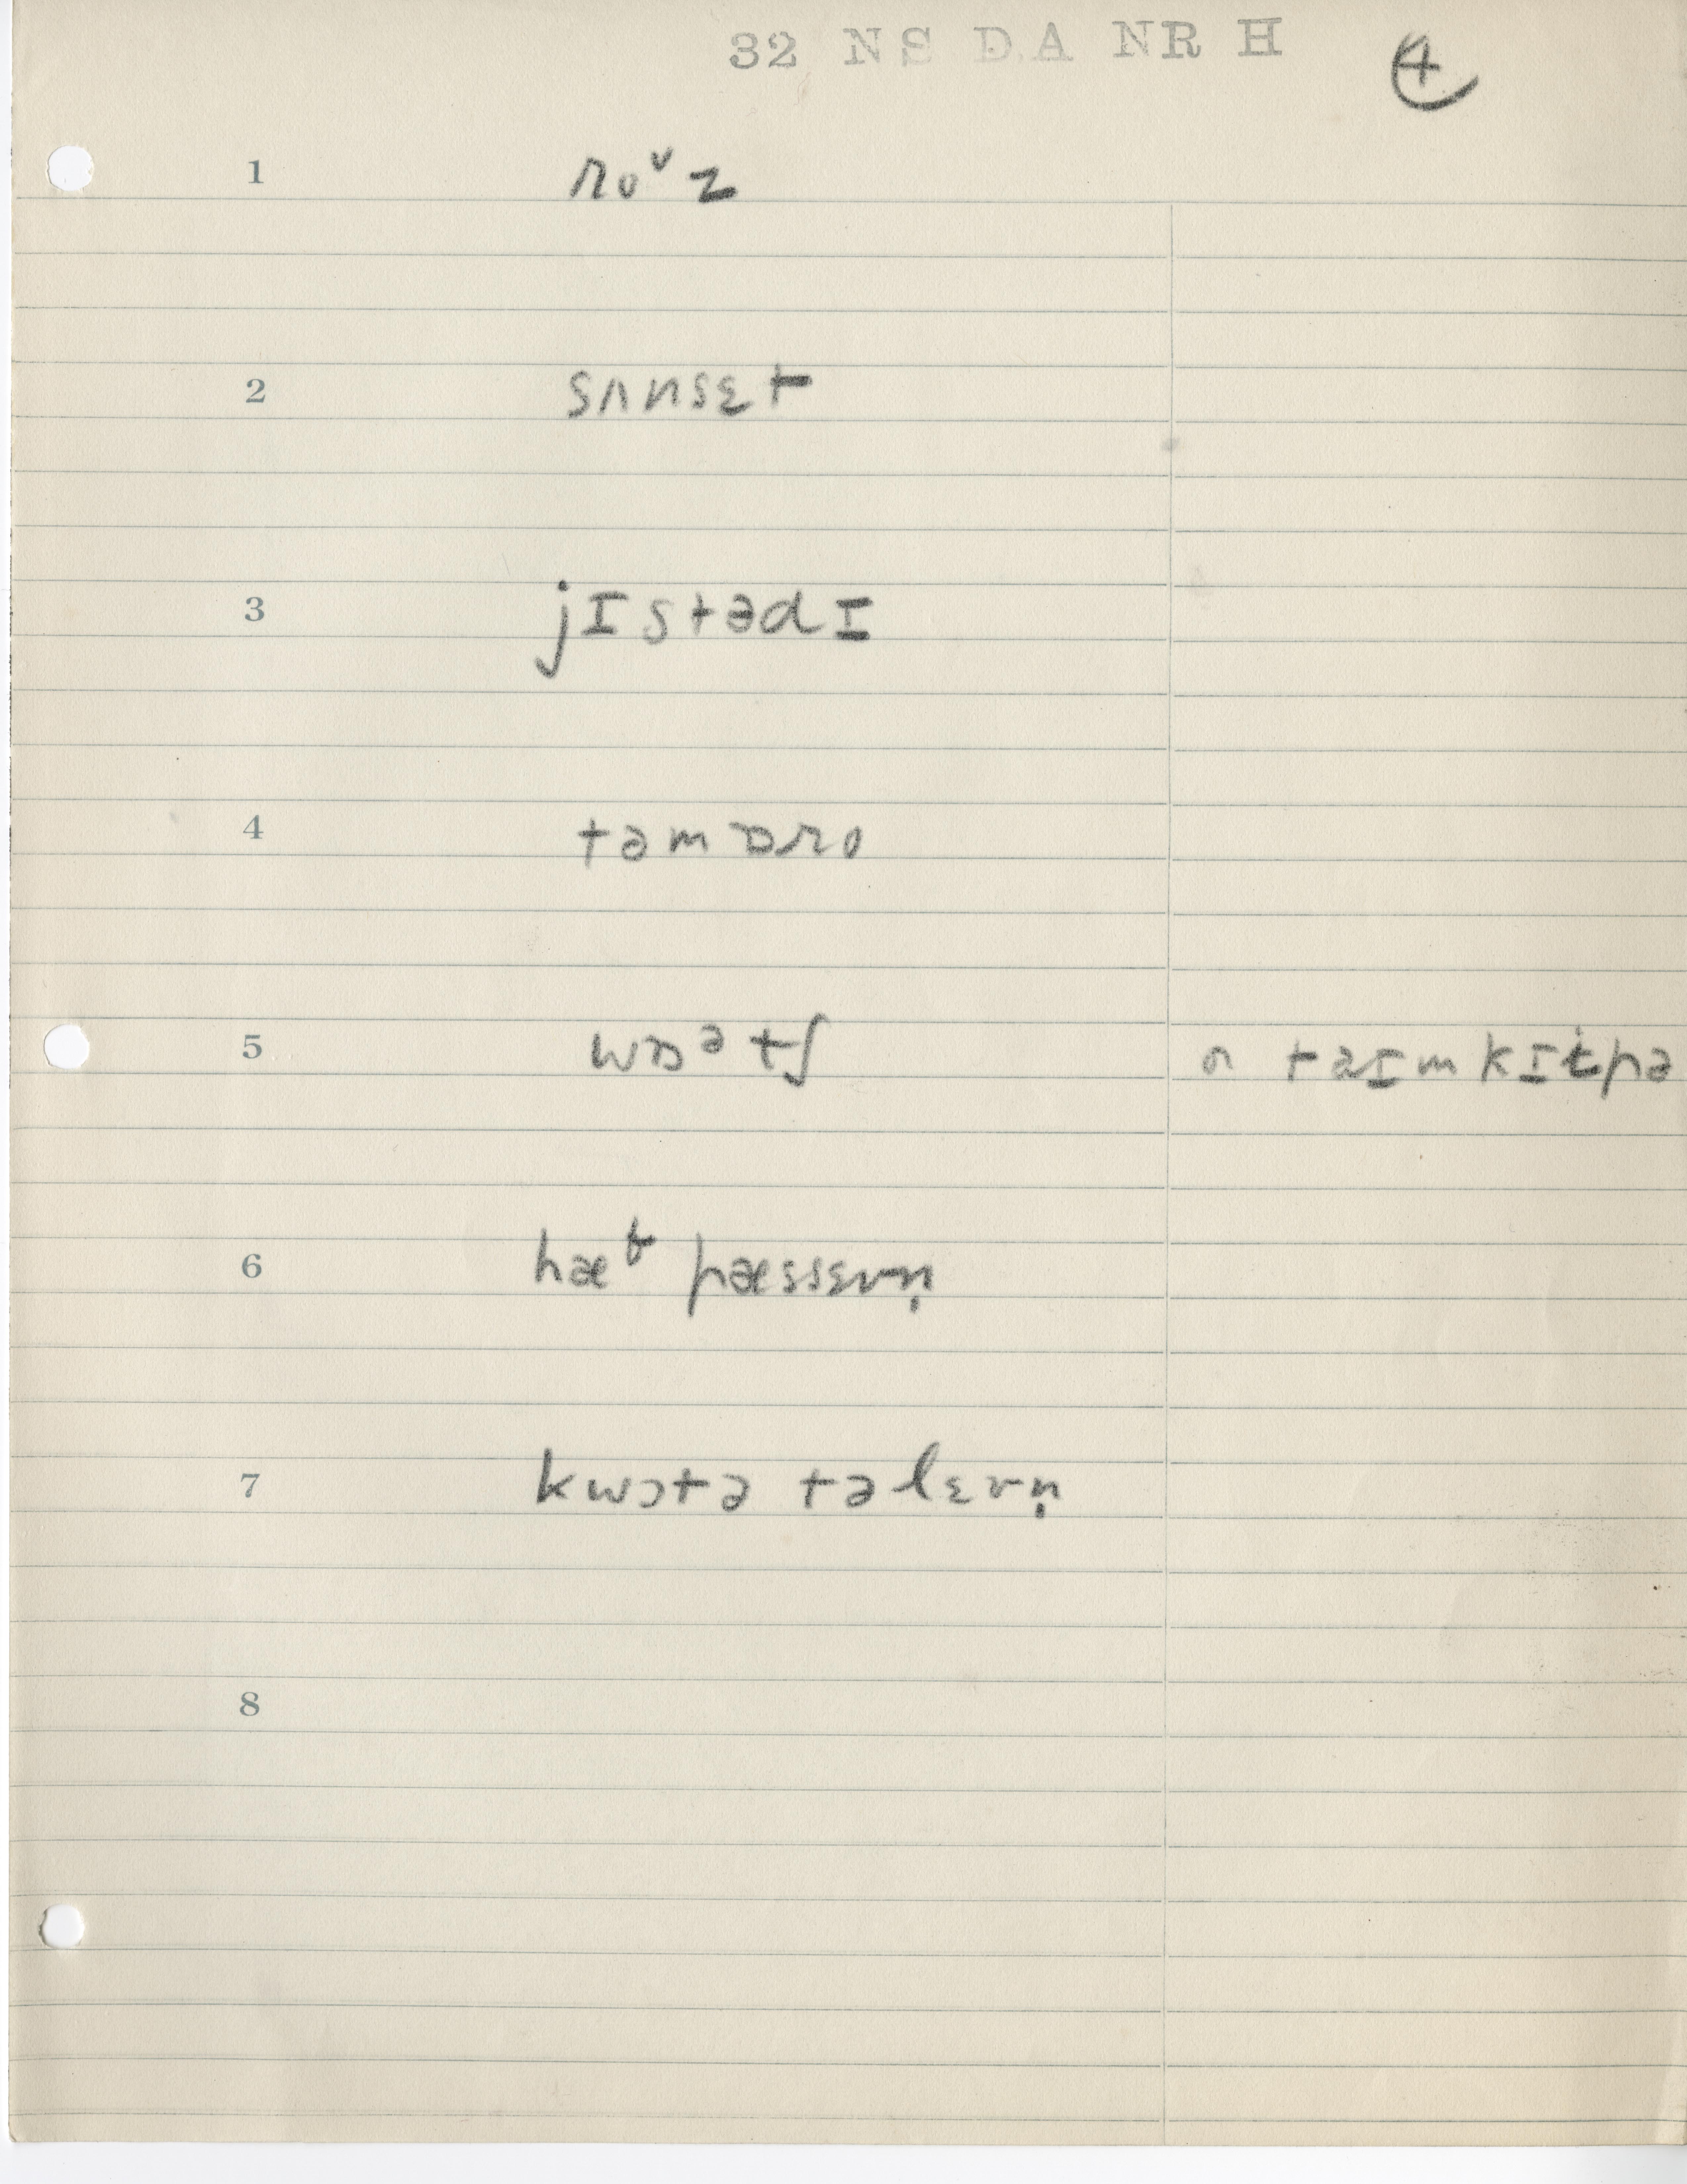 32 NS DA NR H 4
1 roᶷz
2 sʌnsɛt
3 jɪstədɪ
4 təmɒro
5 wɒᵊtʃ ə taɪmkɪtpə
6 hæᵗ pæssɛvn̩
7 kwɔtə təlɛvn̩
8